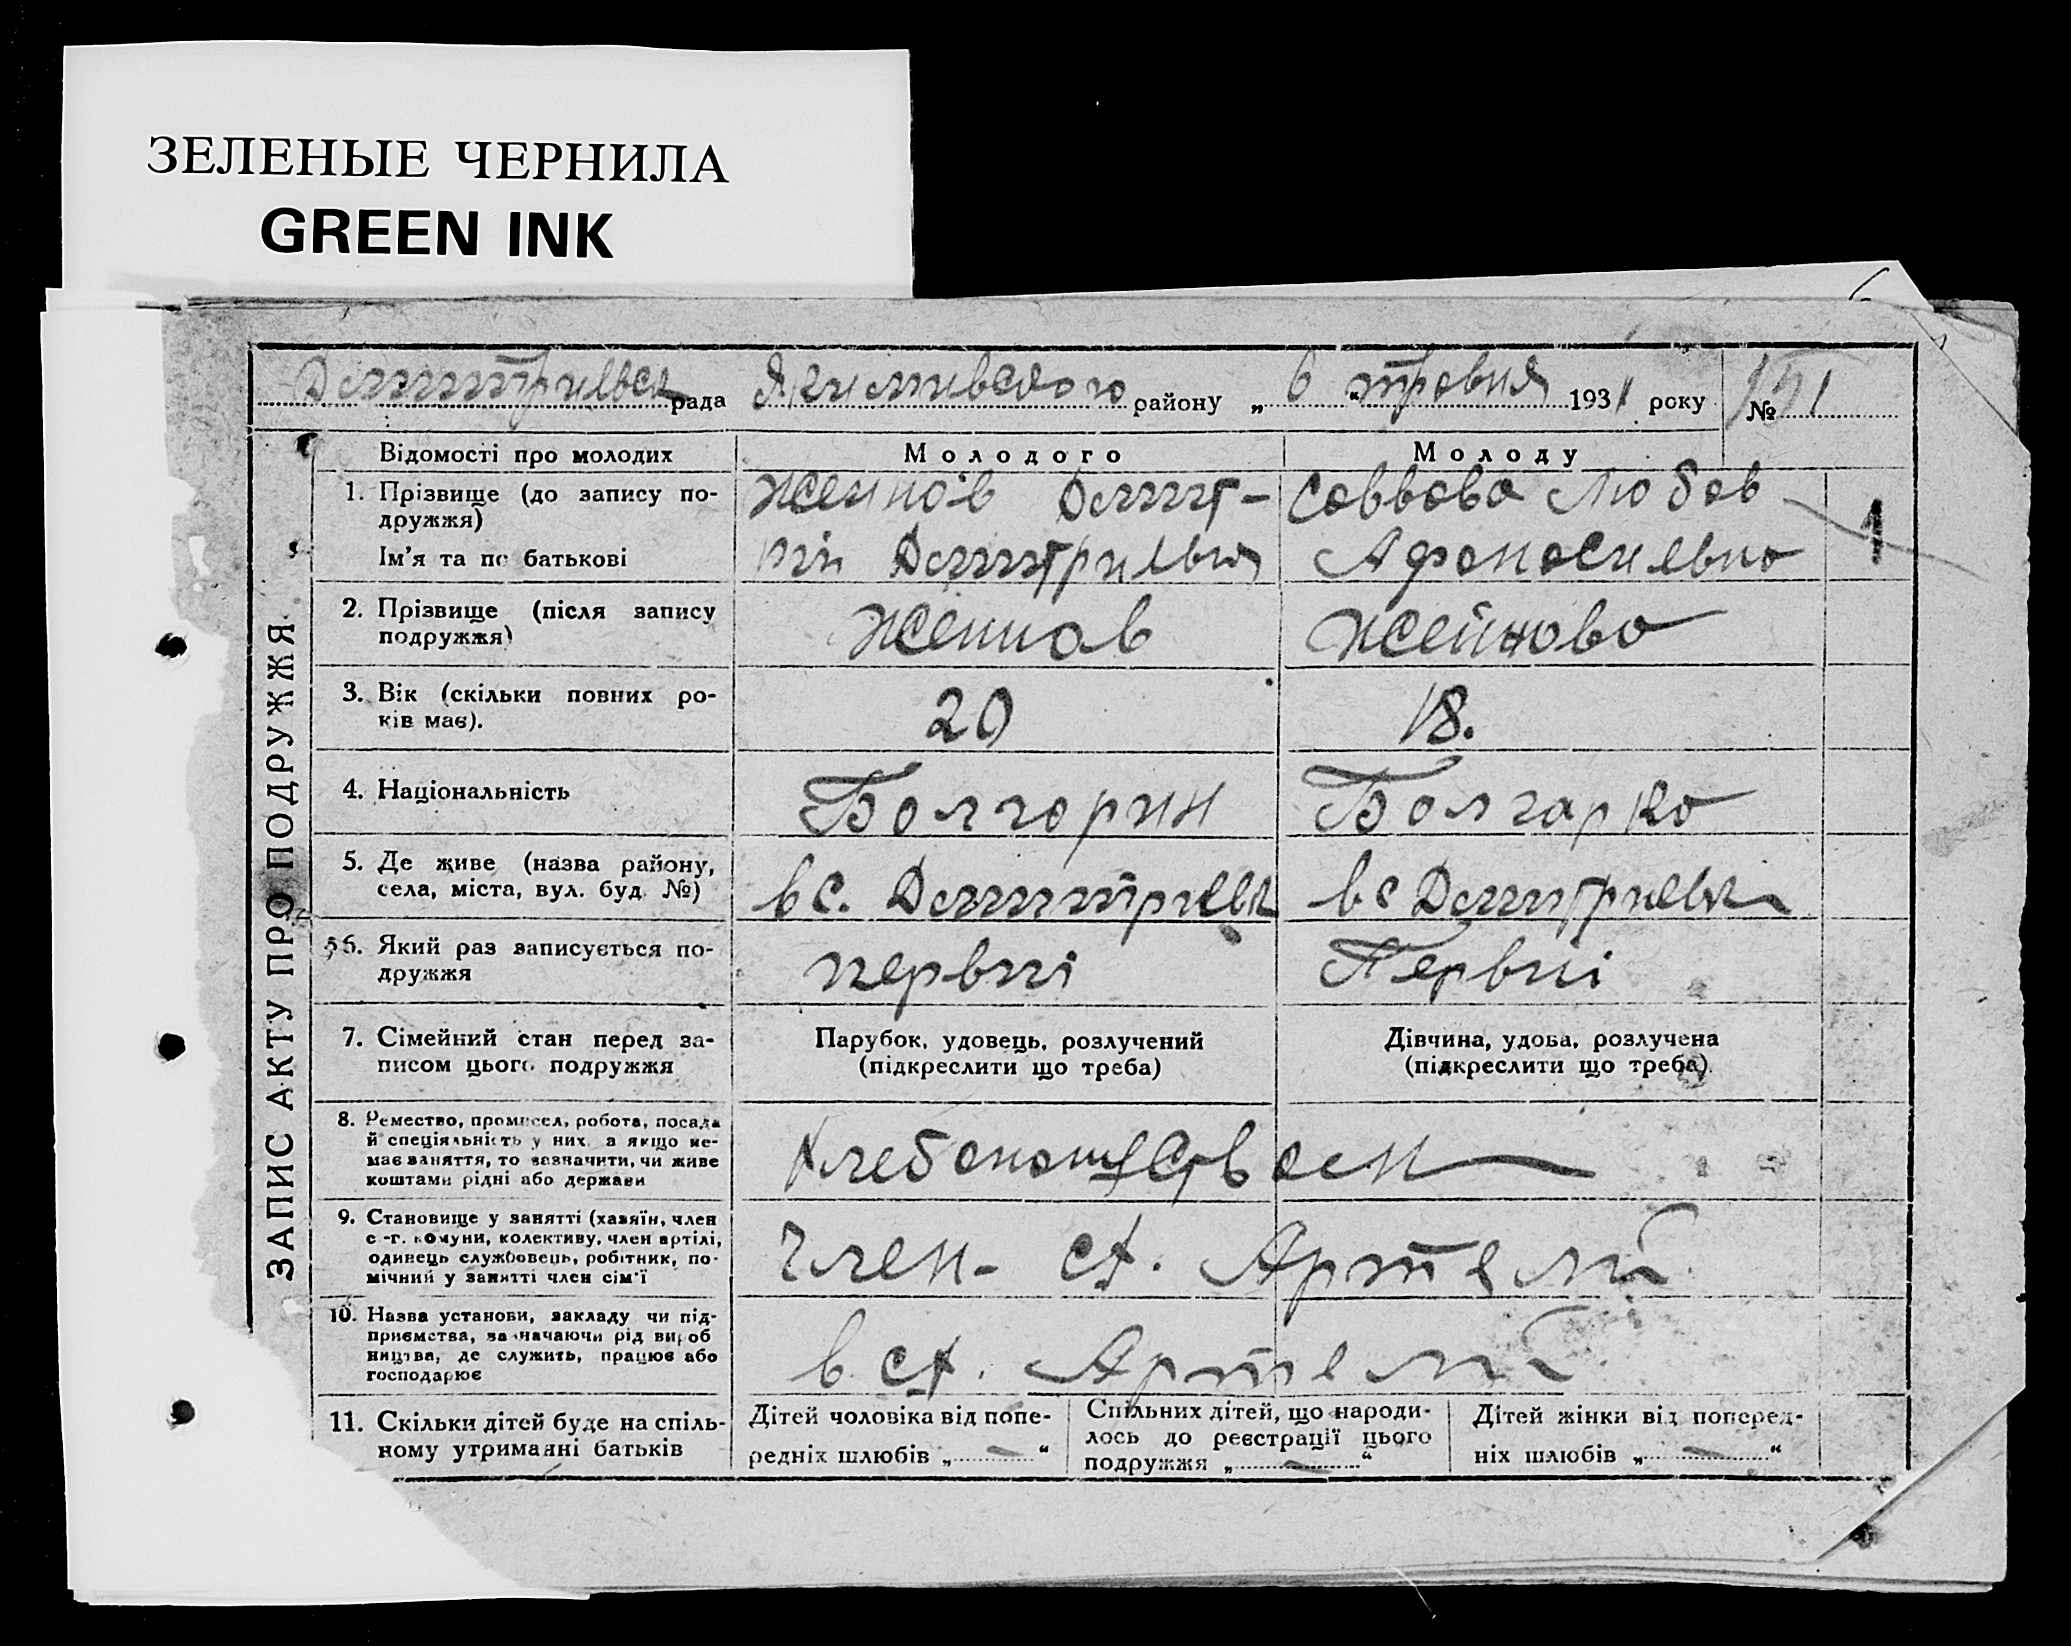 ЗЕЛЕНЫЕ ЧЕРНИЛА
GREEN INK
рада района району „ 6 “ травня 1931 року №
ЗАПИС АКТУ ПРО ПОДРУЖЖЯ
Відомості про молодих
Молодого
Молоду
1. Прізвище (до запису по-
дружжя)
Ім’я та по батькові
Дмит-
рій
Саввова Любов
Афанасиевна
1
2. Прізвище (після запису
подружжя)
Жейнов
Жейнова
3. Вік (скільки повних ро-
ків має).
20
18.
4. Національність
Болгарин
Болгарка
5. Де живе (назва району,
села, міста, вул. буд. №)
в с. Дмитриевк
в с Дмитриевка
6. Який раз записується по-
дружжя
первий
Первий
7. Сімейний стан перед за-
писом цього подружжя
Парубок, удовець, розлучений
(підкреслити що треба)
Дівчина, удова, розлучена
(підкреслити що треба).
8. Ремество, промисел, робота, посада
й спеціяльність у них, а якщо не-
має заняття, то зазначити, чи живе
коштами рідні або держави
9. Становище у занятті (хазяїн, член
с.-г. комуни, колективу, член артілі,
одинець службовець, робітник, по-
мічний у занятті член сім’ї
Член
10. Назва установи, закладу чи під-
приємства, зазначаючи рід вироб
ництва, де служить, працює або
господарює
в
11. Скільки дітей буде на спіль-
ному утриманні батьків
Дітей чоловіка від попе-
редніх шлюбів „ — “
Спільних дітей, що народи-
лось до реєстрації цього
подружжя „ — “
Дітей жінки від поперед-
ніх шлюбів „ — “